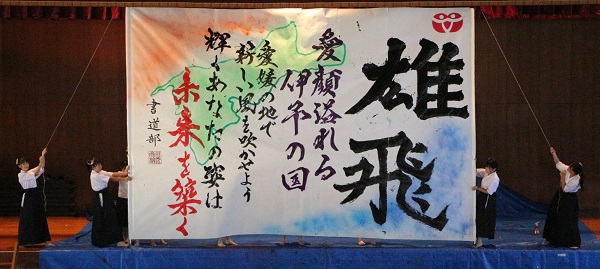 雄飛
愛顔溢れる
伊予の国
愛媛の地で
新しい風を吹かせよう
輝くあなたの姿は
未来を築く
書道部